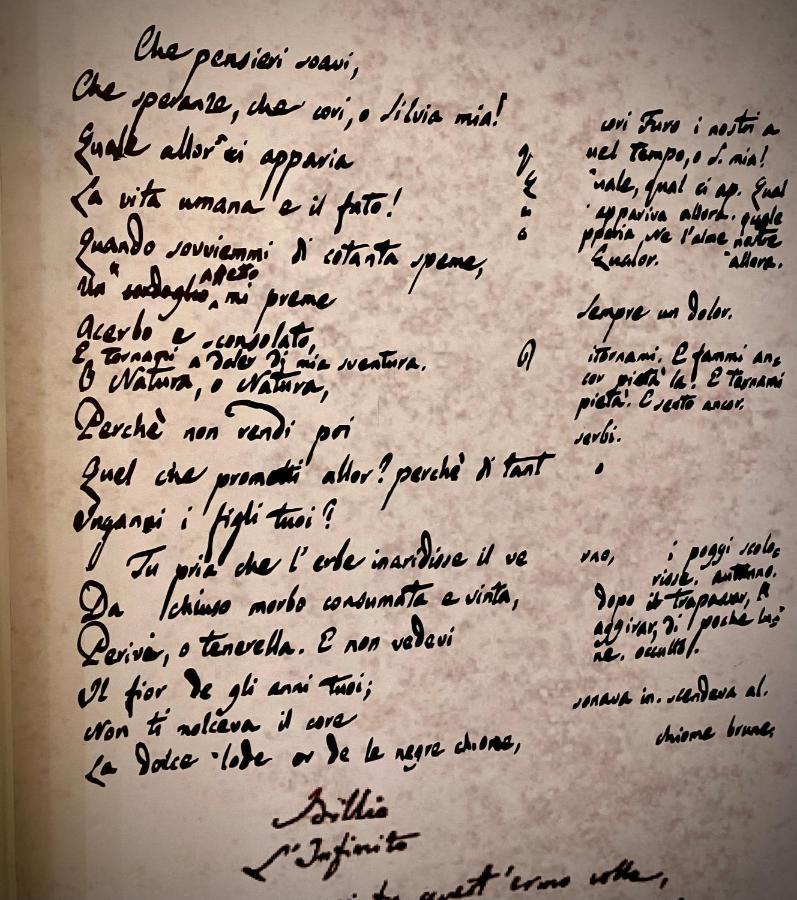 Che pensieri soavi,
Che speranze, che cori, o Silvia mia!
Quale allor ci apparia
La vita umana e il fato!
Quando sovviemmi di cotanta speme,
affetto
Un sordoglio mi preme
Acerbo e sconsolato,
E tornami a doler di mia sventura.
O Natura, o Natura,
Perchè non rendi poi
Quel che prometti allor? perchè di tant
Inganni i figli tuoi?
Tu pria che l'erbe inaridisse il ve
Da chiuso morbo consumata e vinta,
Perivi, o tenerella. E non vedevi
Il fior de gli anni tuoi;
Non ti molceva il core
La dolce lode or de le negre chiome,
cori Furo i nostri a
nel tempo, o S. mia!
uale, qual ci ap. Qual
appariva allora. quale
pparia Ne l'alme nostre
Qualor. allora.
sempre un dolor.
itornami. E fammi anc
cor pietà la! E tornami
pietà. E sento ancor.
serbi.
o
rno, i poggi scolo
risse. autunno.
dopo il trapassar, il
aggirar, di poche lu
ne. occulto.
sonava in. scendeva al.
chiome brune,
Idillio
L'Infinito
quest'ermo colle,